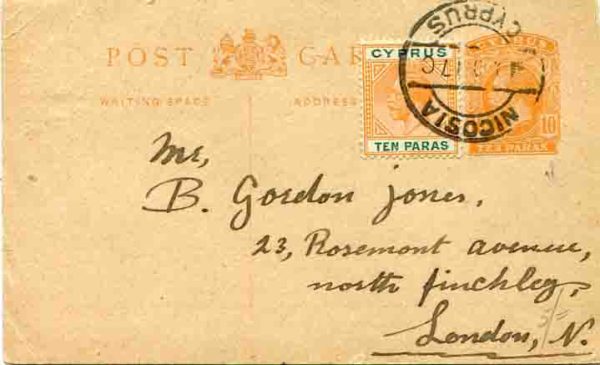 POST CAR
WRITING SPACE
ADDRESS
CYPRUS
TEN PARAS
CYPRUS
10
TEN PARAS
NICOSIA
CYPRUS
Mr,
B. Gordon Jones,
23, Rosemont avenue,
north finchley,
London, N.